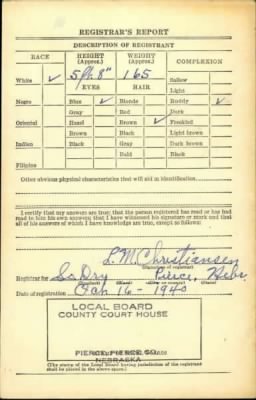 REGISTRAR'S REPORT
DESCRIPTION OF REGISTRANT
RACE HEIGHT (Approx.) WEIGHT (Approx.) COMPLEXION
White ✓ 5 ft. 8" 165 Sallow
EYES HAIR Light
Negro Blue ✓ Blonde Ruddy ✓
Gray Red Dark
Oriental Hazel Brown ✓ Freckled
Brown Black Light brown
Indian Black Gray Dark brown
Bald Black
Filipino
Other obvious physical characteristics that will aid in identification
I certify that my answers are true; that the person registered has read or has had
read to him his own answers; that I have witnessed his signature or mark and that
all of his answers of which I have knowledge are true, except as follows:
L. M. Christiansen
(Signature of registrar)
Registrar for Pierce, Nebr.
Date of registration Oct 16 - 1940
LOCAL BOARD
COUNTY COURT HOUSE
PIERCE, PIERCE, CO.
NEBRASKA
(The stamp of the Local Board having jurisdiction of the registrant
shall be placed in the above space.)